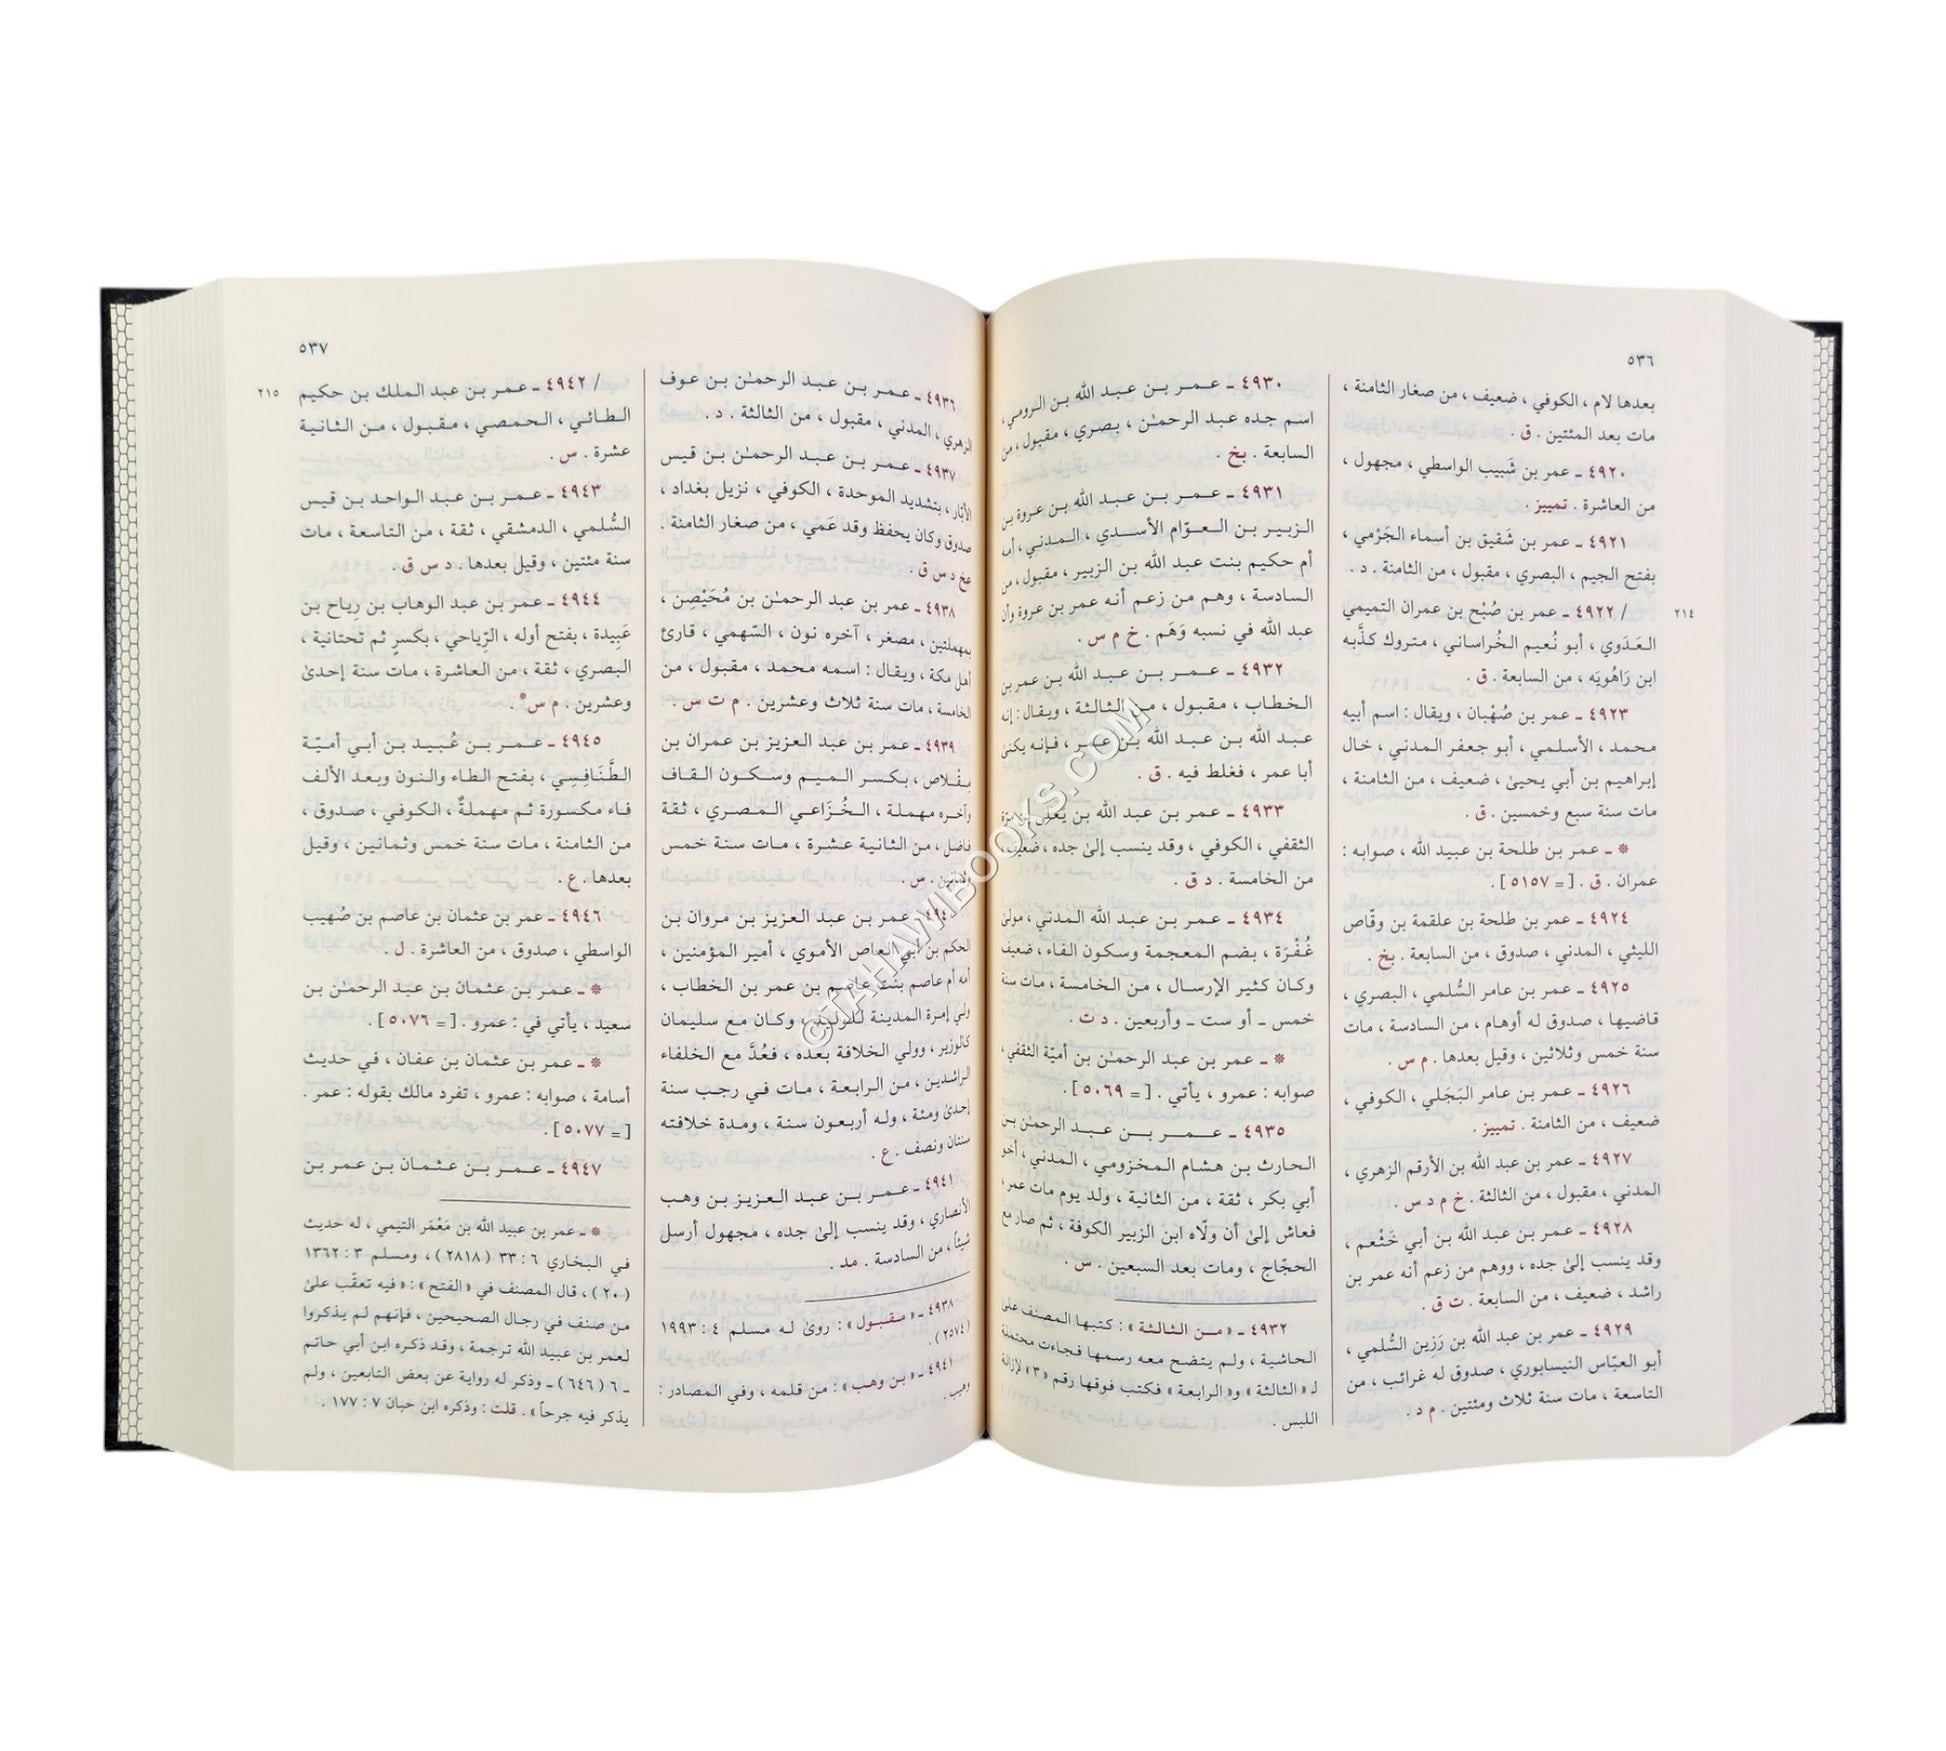 ٥٣٦
بعدها لام ، الكوفي ، ضعيف ، من صغار الثامنة ،
مات بعد المئتين . ق .
٤٩٢٠ ـ عمر بن شَبيب الواسطي ، مجهول ،
من العاشرة . تمييز .
٤٩٢١ ـ عمر بن شَقيق بن أسماء الجَرْمي ،
بفتح الجيم ، البصري ، مقبول ، من الثامنة . د .
٢١٤
/ ٤٩٢٢ ـ عمر بن صُبْح بن عمران التميمي
العَدَوي ، أبو نُعيم الخُراساني ، متروك كذَّبه
ابن رَاهُويَه ، من السابعة . ق .
٤٩٢٣ ـ عمر بن صُهْبان ، ويقال : اسم أبيه
محمد ، الأسلمي ، أبو جعفر المدني ، خال
إبراهيم بن أبي يحيىٰ ، ضعيف ، من الثامنة ،
مات سنة سبع وخمسين . ق .
* ـ عمر بن طلحة بن عبيد الله ، صوابه :
عمران . ق . [= ٥١٥٧] .
٤٩٢٤ ـ عمر بن طلحة بن علقمة بن وقّاص
الليثي ، المدني ، صدوق ، من السابعة . بخ .
٤٩٢٥ ـ عمر بن عامر السُّلمي ، البصري ،
قاضيها ، صدوق له أوهام ، من السادسة ، مات
سنة خمس وثلاثين ، وقيل بعدها . م س .
٤٩٢٦ ـ عمر بن عامر البَجَلي ، الكوفي ،
ضعيف ، من الثامنة . تمييز .
٤٩٢٧ ـ عمر بن عبد الله بن الأرقم الزهري ،
المدني ، مقبول ، من الثالثة . خ م د س .
٤٩٢٨ ـ عمر بن عبد الله بن أبي خَثْعم ،
وقد ينسب إلىٰ جده ، ووهم من زعم أنه عمر بن
راشد ، ضعيف ، من السابعة . ت ق .
٤٩٢٩ ـ عمر بن عبد الله بن رَزِين السُّلمي ،
أبو العبّاس النيسابوري ، صدوق له غرائب ، من
التاسعة ، مات سنة ثلاث ومئتين . م د .
٤٩٣٠ ـ عمر بن عبد الله بن الرومي ،
اسم جده عبد الرحمٰن ، بصري ، مقبول ، من
السابعة . بخ .
٤٩٣١ ـ عمر بن عبد الله بن عروة بن
الزبير بن العوّام الأسدي ، المدني ، أمه
أم حكيم بنت عبد الله بن الزبير ، مقبول ، من
السادسة ، وهم من زعم أنه عمر بن عروة وأن
عبد الله في نسبه وَهَم . خ م س .
٤٩٣٢ ـ عمر بن عبد الله بن عمر بن
الخطاب ، مقبول ، من الثالثة ، ويقال : إنه
عبد الله بن عبد الله بن عمر ، فإنه يكنىٰ
أبا عمر ، فغلط فيه . ق .
٤٩٣٣ ـ عمر بن عبد الله بن يعلىٰ بن مرّة
الثقفي ، الكوفي ، وقد ينسب إلىٰ جده ، ضعيف ،
من الخامسة . د ق .
٤٩٣٤ ـ عمر بن عبد الله المدني ، مولىٰ
غُفْرَة ، بضم المعجمة وسكون الفاء ، ضعيف
وكان كثير الإرسال ، من الخامسة ، مات سنة
خمس ـ أو ست ـ وأربعين . د ت .
* ـ عمر بن عبد الرحمٰن بن أميّة الثقفي ،
صوابه : عمرو ، يأتي . [= ٥٠٦٩] .
٤٩٣٥ ـ عمر بن عبد الرحمٰن بن
الحارث بن هشام المخزومي ، المدني ، أخو
أبي بكر ، ثقة ، من الثانية ، ولد يوم مات عمر ،
فعاش إلىٰ أن ولّاه ابن الزبير الكوفة ، ثم صار مع
الحجّاج ، ومات بعد السبعين . س .
٤٩٣٢ ـ «من الثالثة» : كتبها المصنف علىٰ
الحاشية ، ولم يتضح معه رسمها فجاءت محتملة
لـ «الثالثة» و«الرابعة» فكتب فوقها رقم «٣» لإزالة
اللبس .
٥٣٧
٤٩٣٦ ـ عمر بن عبد الرحمٰن بن عوف
الزهري ، المدني ، مقبول ، من الثالثة . د .
٤٩٣٧ ـ عمر بن عبد الرحمٰن بن قيس
الأبّار ، بتشديد الموحدة ، الكوفي ، نزيل بغداد ،
صدوق وكان يحفظ وقد عَمي ، من صغار الثامنة .
عخ د س ق .
٤٩٣٨ ـ عمر بن عبد الرحمٰن بن مُحَيْصِن ،
بمهملتين ، مصغر ، آخره نون ، السّهمي ، قارئ
أهل مكة ، ويقال : اسمه محمد ، مقبول ، من
الخامسة ، مات سنة ثلاث وعشرين . م ت س .
٤٩٣٩ ـ عمر بن عبد العزيز بن عمران بن
مِقْلاص ، بكسر الميم وسكون القاف
وآخره مهملة ، الخُزَاعي المصري ، ثقة
فاضل ، من الثانية عشرة ، مات سنة خمس
وثمانين . س .
٤٩٤٠ ـ عمر بن عبد العزيز بن مروان بن
الحكم بن أبي العاص الأموي ، أمير المؤمنين ،
أمه أم عاصم بنت عاصم بن عمر بن الخطاب ،
ولي إمرة المدينة للوليد ، وكان مع سليمان
كالوزير ، وولي الخلافة بعده ، فعُدَّ مع الخلفاء
الراشدين ، من الرابعة ، مات في رجب سنة
إحدىٰ ومئة ، وله أربعون سنة ، ومدة خلافته
سنتان ونصف . ع .
٤٩٤١ ـ عمر بن عبد العزيز بن وهب
الأنصاري ، وقد ينسب إلىٰ جده ، مجهول أرسل
شيئاً ، من السادسة . مد .
٤٩٣٨ ـ «مقبول» : روىٰ له مسلم ٤ : ١٩٩٣
(٢٥٧٤) .
٤٩٤١ ـ «بن وهب» : من قلمه ، وفي المصادر :
وهيب .
٢١٥
/ ٤٩٤٢ ـ عمر بن عبد الملك بن حكيم
الطائي ، الحمصي ، مقبول ، من الثانية
عشرة . س .
٤٩٤٣ ـ عمر بن عبد الواحد بن قيس
السُّلمي ، الدمشقي ، ثقة ، من التاسعة ، مات
سنة مئتين ، وقيل بعدها . د س ق .
٤٩٤٤ ـ عمر بن عبد الوهاب بن رِياح بن
عَبِيدة ، بفتح أوله ، الرِّياحي ، بكسرٍ ثم تحتانية ،
البصري ، ثقة ، من العاشرة ، مات سنة إحدىٰ
وعشرين . م س* .
٤٩٤٥ ـ عمر بن عُبيد بن أبي أميّة
الطَّنَافِسِي ، بفتح الطاء والنون وبعد الألف
فاء مكسورة ثم مهملةٌ ، الكوفي ، صدوق ،
من الثامنة ، مات سنة خمس وثمانين ، وقيل
بعدها . ع .
٤٩٤٦ ـ عمر بن عثمان بن عاصم بن صُهيب
الواسطي ، صدوق ، من العاشرة . ل .
* ـ عمر بن عثمان بن عبد الرحمٰن بن
سعيد ، يأتي في : عمرو . [= ٥٠٧٦] .
* ـ عمر بن عثمان بن عفان ، في حديث
أسامة ، صوابه : عمرو ، تفرد مالك بقوله : عمر .
[= ٥٠٧٧] .
٤٩٤٧ ـ عمر بن عثمان بن عمر بن
* ـ عمر بن عبيد الله بن مَعْمَر التيمي ، له حديث
في البخاري ٦ : ٣٣ (٢٨١٨) ، ومسلم ٣ : ١٣٦٢
(٢٠) ، قال المصنف في «الفتح» : «فيه تعقّب علىٰ
من صنف في رجال الصحيحين ، فإنهم لم يذكروا
لعمر بن عبيد الله ترجمة ، وقد ذكره ابن أبي حاتم
ـ ٦ (٦٤٦) ـ وذكر له رواية عن بعض التابعين ، ولم
يذكر فيه جرحاً» . قلت : وذكره ابن حبان ٧ : ١٧٧ .
©TAHAWIBOOKS.COM